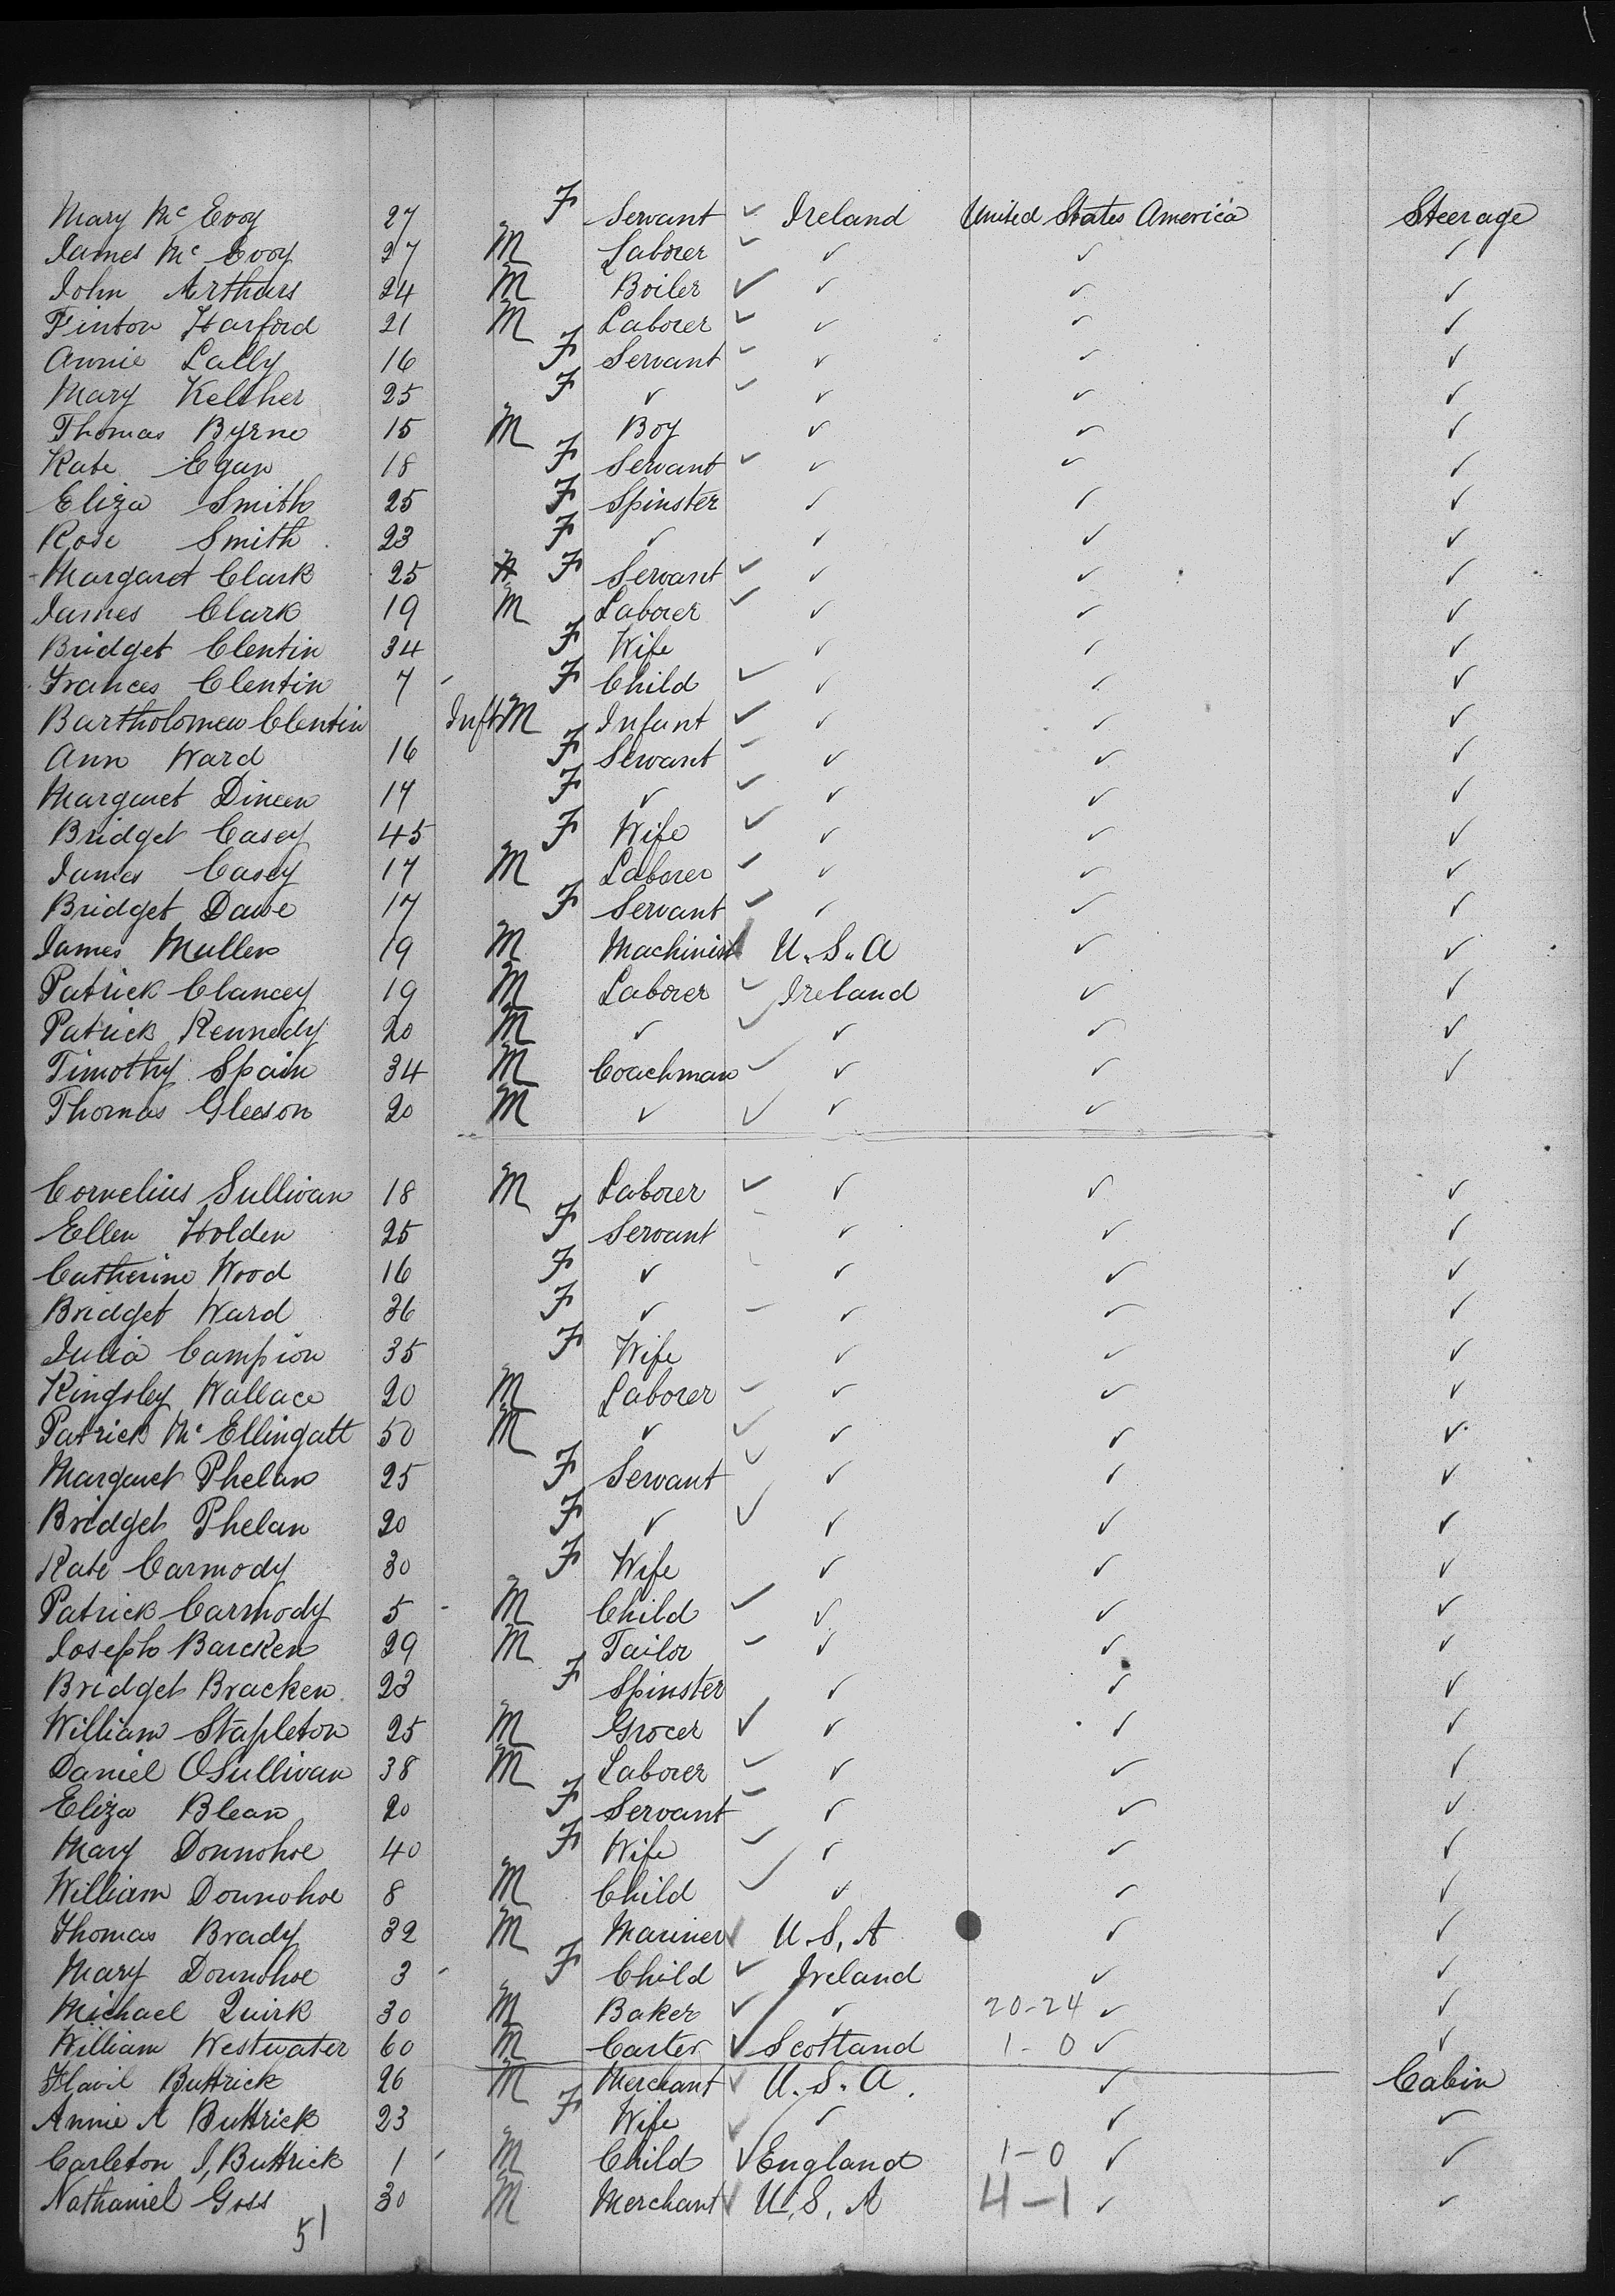 Mary Mc Evoy 27 F Servant ✓ Ireland United States America Steerage
James Mc Evoy 27 M Laborer ✓ ✓ ✓ ✓
John Arthurs 24 M Boiler ✓ ✓ ✓ ✓
Finton Harford 21 M Laborer ✓ ✓ ✓ ✓
Annie Lally 16 F Servant ✓ ✓ ✓ ✓
Mary Kelther 25 F ✓ ✓ ✓ ✓ ✓
Thomas Byrne 15 M Boy ✓ ✓ ✓
Kate Egan 18 F Servant ✓ ✓ ✓ ✓
Eliza Smith 25 F Spinster ✓ ✓ ✓
Rose Smith 23 F ✓ ✓ ✓ ✓
Margaret Clark 25 F Servant ✓ ✓ ✓ ✓
James Clark 19 M Laborer ✓ ✓ ✓ ✓
Bridget Clentin 34 F Wife ✓ ✓ ✓
Frances Clentin 7 - F Child ✓ ✓ ✓ ✓
Bartholomew Clentin Inft M Infant ✓ ✓ ✓ ✓
Ann Ward 16 F Servant ✓ ✓ ✓ ✓
Margaret Dineen 17 F ✓ ✓ ✓ ✓ ✓
Bridget Casey 45 F Wife ✓ ✓ ✓ ✓
James Casey 17 M Laborer ✓ ✓ ✓ ✓
Bridget Dawe 17 F Servant ✓ ✓ ✓ ✓
James Mullen 19 M Machinist ✓ U.S.A ✓ ✓
Patrick Clancey 19 M Laborer ✓ Ireland ✓ ✓
Patrick Kennedy 20 M ✓ ✓ ✓ ✓ ✓
Timothy Spain 34 M Coachman ✓ ✓ ✓ ✓
Thomas Gleeson 20 M ✓ ✓ ✓ ✓
Cornelius Sullivan 18 M Laborer ✓ ✓ ✓ ✓
Ellen Holden 25 F Servant - ✓ ✓ ✓
Catherine Wood 16 F ✓ - ✓ ✓ ✓
Bridget Ward 36 F ✓ - ✓ ✓ ✓
Julia Campion 35 F Wife ✓ ✓ ✓
Kingsley Wallace 20 M Laborer ✓ ✓ ✓ ✓
Patrick Mc Ellingatt 50 M ✓ ✓ ✓ ✓ ✓
Margaret Phelan 25 F Servant ✓ ✓ ✓ ✓
Bridget Phelan 20 F ✓ ✓ ✓ ✓ ✓
Kate Carmody 30 F Wife ✓ ✓ ✓
Patrick Carmody 5 - M Child ✓ ✓ ✓ ✓
Joseph Barcken 29 M Tailor ✓ ✓ ✓ ✓
Bridget Bracken 23 F Spinster ✓ ✓ ✓
William Stapleton 25 M Grocer ✓ ✓ ✓ ✓
Daniel OSullivan 38 M Laborer ✓ ✓ ✓ ✓
Eliza Blean 20 F Servant ✓ ✓ ✓ ✓
Mary Donnohoe 40 F Wife ✓ ✓ ✓ ✓
William Donnohoe 8 M Child ✓ ✓ ✓ ✓
Thomas Brady 32 M Mariner ✓ U.S.A ✓ ✓
Mary Donnohoe 3 - F Child ✓ Ireland ✓ ✓
Michael Quirk 30 M Baker ✓ ✓ 20-24 ✓ ✓
William Westwater 60 M Carter ✓ Scotland 1-0 ✓ ✓
Flavil Buttrick 26 M Merchant ✓ U.S.A. ✓ Cabin
Annie A Buttrick 23 F Wife ✓ ✓ ✓ ✓
Carleton I, Buttrick 1 - M Child ✓ England 1-0 ✓ ✓
Nathaniel Goss 30 M Merchant ✓ U.S.A 4-1 ✓ ✓
51